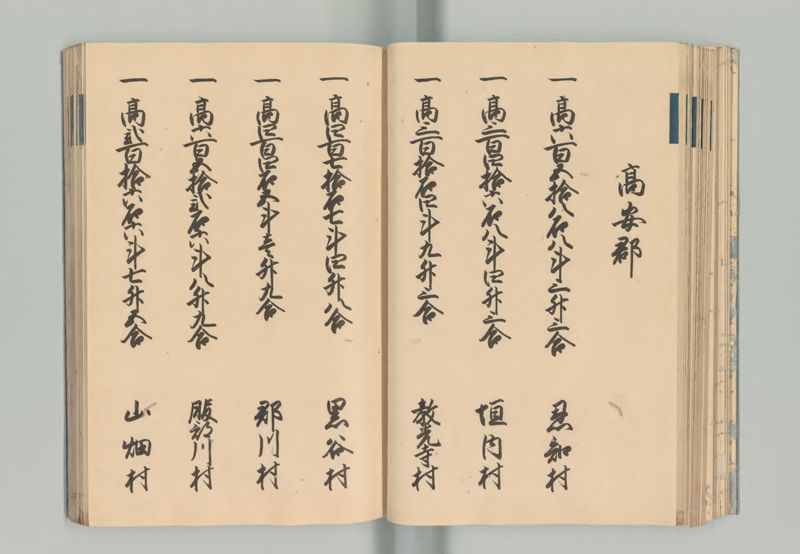 高安郡
一 高六百五拾八石八斗二升三合 恩知村
一 高三百四拾六石八斗四升二合 垣内村
一 高三百拾石四斗九升三合 教光寺村
一 高四百七拾石七斗四升八合 黒谷村
一 高四百四石五斗壱升九合 郡川村
一 高六百五拾弐石六斗八升九合 服部川村
一 高弐百拾六石六斗七升五合 山畑村